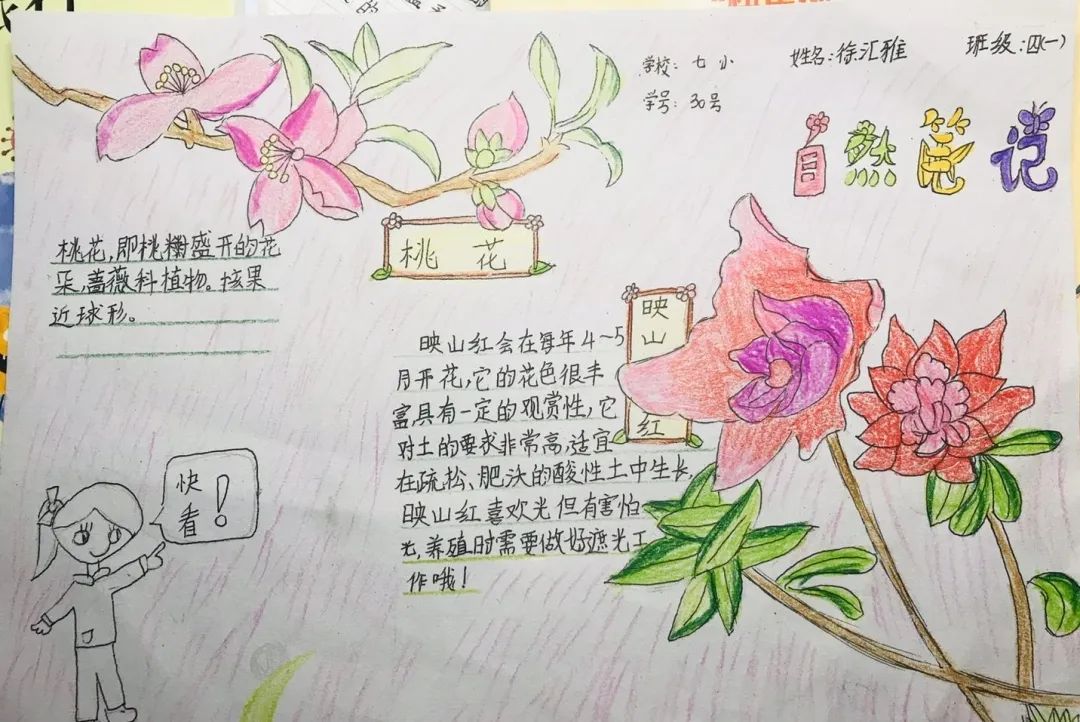 学校：七小
姓名：徐汇雅
班级：四(一)
学号：30号
自然笔记
桃花
桃花，即桃树盛开的花
朵，蔷薇科植物。核果
近球形。
映山红
映山红会在每年4～5
月开花，它的花色很丰
富具有一定的观赏性，它
对土的要求非常高，适宜
在疏松、肥沃的酸性土中生长，
映山红喜欢光但有害怕
光，养殖时需要做好遮光工
作哦！
快看！